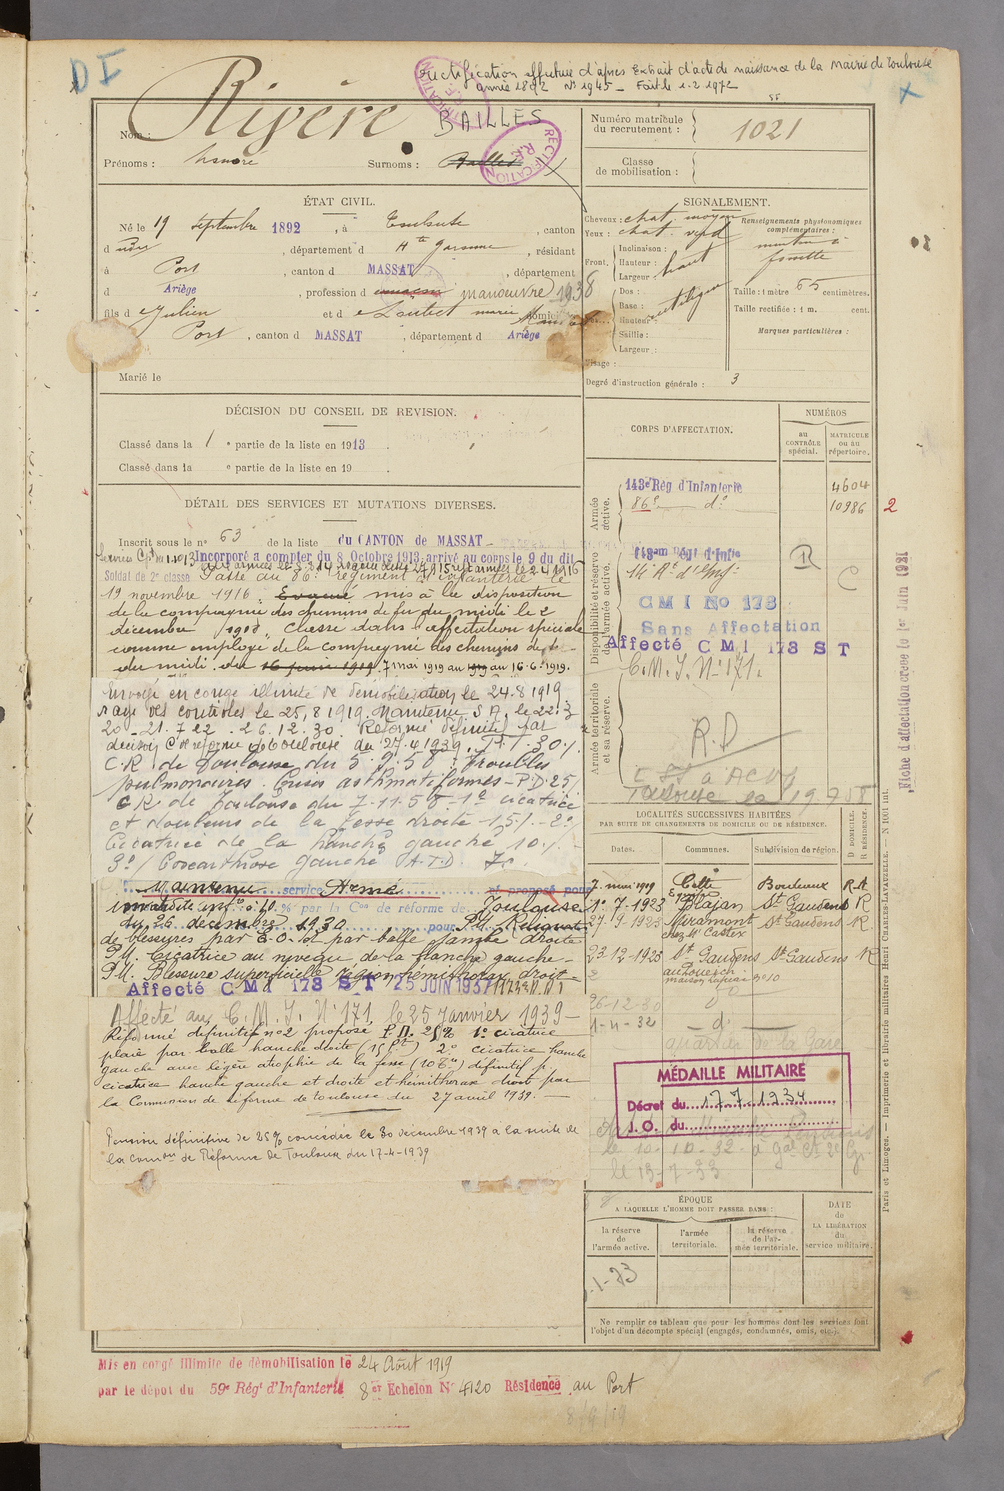 D I
rectification effectuée d'après Extrait d'acte de naissance de la Mairie de Toulouse
année 1892 N° 1945 - Fait le 1.2.1972
Nom : Rivère BAILLES
RECTIFICATION R.F.
Prénoms : honoré Surnoms : Bailles
RECTIFICATION R.F.
Numéro matricule du recrutement : 1021
Classe de mobilisation :
ÉTAT CIVIL.
Né le 19 septembre 1892, à Toulouse, canton
d udit, département d Hte Garonne, résidant
à Port, canton d MASSAT, département
d Ariège, profession d manœuvre 1938
fils d Julien et d Loubet marie domici
Port, canton d MASSAT, département d Ariège
Marié le
SIGNALEMENT.
Cheveux : chat. moyen
Yeux : chat. verd
Front. Inclinaison :
Hauteur : haut
Largeur :
Dos : rectiligne
Base :
Hauteur :
Saillie :
Largeur :
Visage :
Renseignements physionomiques complémentaires :
menton à
fossette
Taille : 1 mètre 65 centimètres.
Taille rectifiée : 1 m. cent.
Marques particulières :
Degré d'instruction générale : 3
DÉCISION DU CONSEIL DE REVISION.
Classé dans la 1 e partie de la liste en 1913.
Classé dans la e partie de la liste en 19 .
DÉTAIL DES SERVICES ET MUTATIONS DIVERSES.
Inscrit sous le n° 63 de la liste du CANTON DE MASSAT
Incorporé a compter du 8 Octobre 1913, arrivé au corps le 9 du dit
Soldat de 2e classe Passé au 86e régiment d'infanterie le
19 novembre 1916. Evacué mis à la disposition
de la compagnie des chemins de fer du midi le 2
décembre 1918. Classé dans l'affectation spéciale
comme employé de la compagnie des chemins de fer
du midi du 16 juin 1919 7 mai 1919 au 16.6.1919.
Envoyé en congé illimité de démobilisation le 24.8.1919
rayé des contrôles le 25.8.1919. Maintenu S A, le 22.3
20 - 21.7.22 - 26.12.30. Réformé définitif par
décision Con réforme de Toulouse du 27.4.1939.
C.R. de Toulouse du 5.9.58 : Troubles
pulmonaires. Crises asthmatiformes - P.D. 25%
C.R. de Toulouse du 7.11.58 - 1° cicatrice
et douleurs de la fesse droite 15% - 2°/
Cicatrice de la hanche gauche 10% -
3°/ Coxarthrose gauche A.T.D.
Maintenu service Armé et proposé pour
invalidité infre à 10 % par la Con de réforme de Toulouse
du 26 décembre 1930 pour P.M. Reliquat
de blessures par E.O. et par balle jambe droite
P.M. Cicatrice au niveau de la hanche gauche -
P.M. Blessure superficielle région hémithorax droit -
Affecté C M I 173 S T 25 JUIN 1937
Affecté au C.M.I. N° 171 le 25 Janvier 1939 -
Réformé définitif n° 2 proposé P.D. 25% 1° cicatrice
plaie par balle hanche droite (15 pt) 2° cicatrice hanche
gauche avec légère atrophie de la fesse (10 %) définitif p.
cicatrice hanche gauche et droite et hémithorax droit par
la Commission de Réforme de Toulouse du 27 avril 1939. -
Pension définitive de 25% concédée le 30 décembre 1939 à la suite de
la comon de Réforme de Toulouse du 17-4-1939
CORPS D'AFFECTATION.
NUMÉROS
au CONTRÔLE spécial.
MATRICULE ou au répertoire.
Armée active.
143e Rég d'Infanterie 4604
86e d° 10986 2
Disponibilité et réserve de l'armée active.
Rt d'Inf
R
C
C M I No 173
Sans Affectation
Affecté C M I 173 S T
C.M.I. N° 171.
Armée territoriale et sa réserve.
R.D
Toulouse le
Fiche d'affectation créée le 1er Juin 1931
LOCALITÉS SUCCESSIVES HABITÉES
PAR SUITE DE CHANGEMENTS DE DOMICILE OU DE RÉSIDENCE.
Dates. Communes. Subdivision de région. D DOMICILE. R RÉSIDENCE
7 mai 1919 Cette Bordeaux R
1°.7.1923 Blajan St Gaudens R
27.9.1925 Miramont St Gaudens R.
chez Mr Castex
23.12.1925 St Gaudens St Gaudens R
maison Lafeias
26-12-30 d°
1-4-32 - d° -
quartier de la Gare
MÉDAILLE MILITAIRE
Décret du 17.7.1934
J. O. du
le 10.10.32
le 13-7-33
ÉPOQUE
A LAQUELLE L'HOMME DOIT PASSER DANS :
la réserve de l'armée active.
l'armée territoriale.
la réserve de l'armée territoriale.
DATE de LA LIBÉRATION du service militaire.
Ne remplir ce tableau que pour les hommes dont les services font
l'objet d'un décompte spécial (engagés, condamnés, omis, etc.).
Paris et Limoges. — Imprimerie et librairie militaires Henri CHARLES-LAVAUZELLE. — N° 1001 int.
Mis en congé illimité de démobilisation le 24 Août 1919
par le dépot du 59e Régt d'Infanterie 8er Echelon N° 4120 Résidence au Port
8/9/19